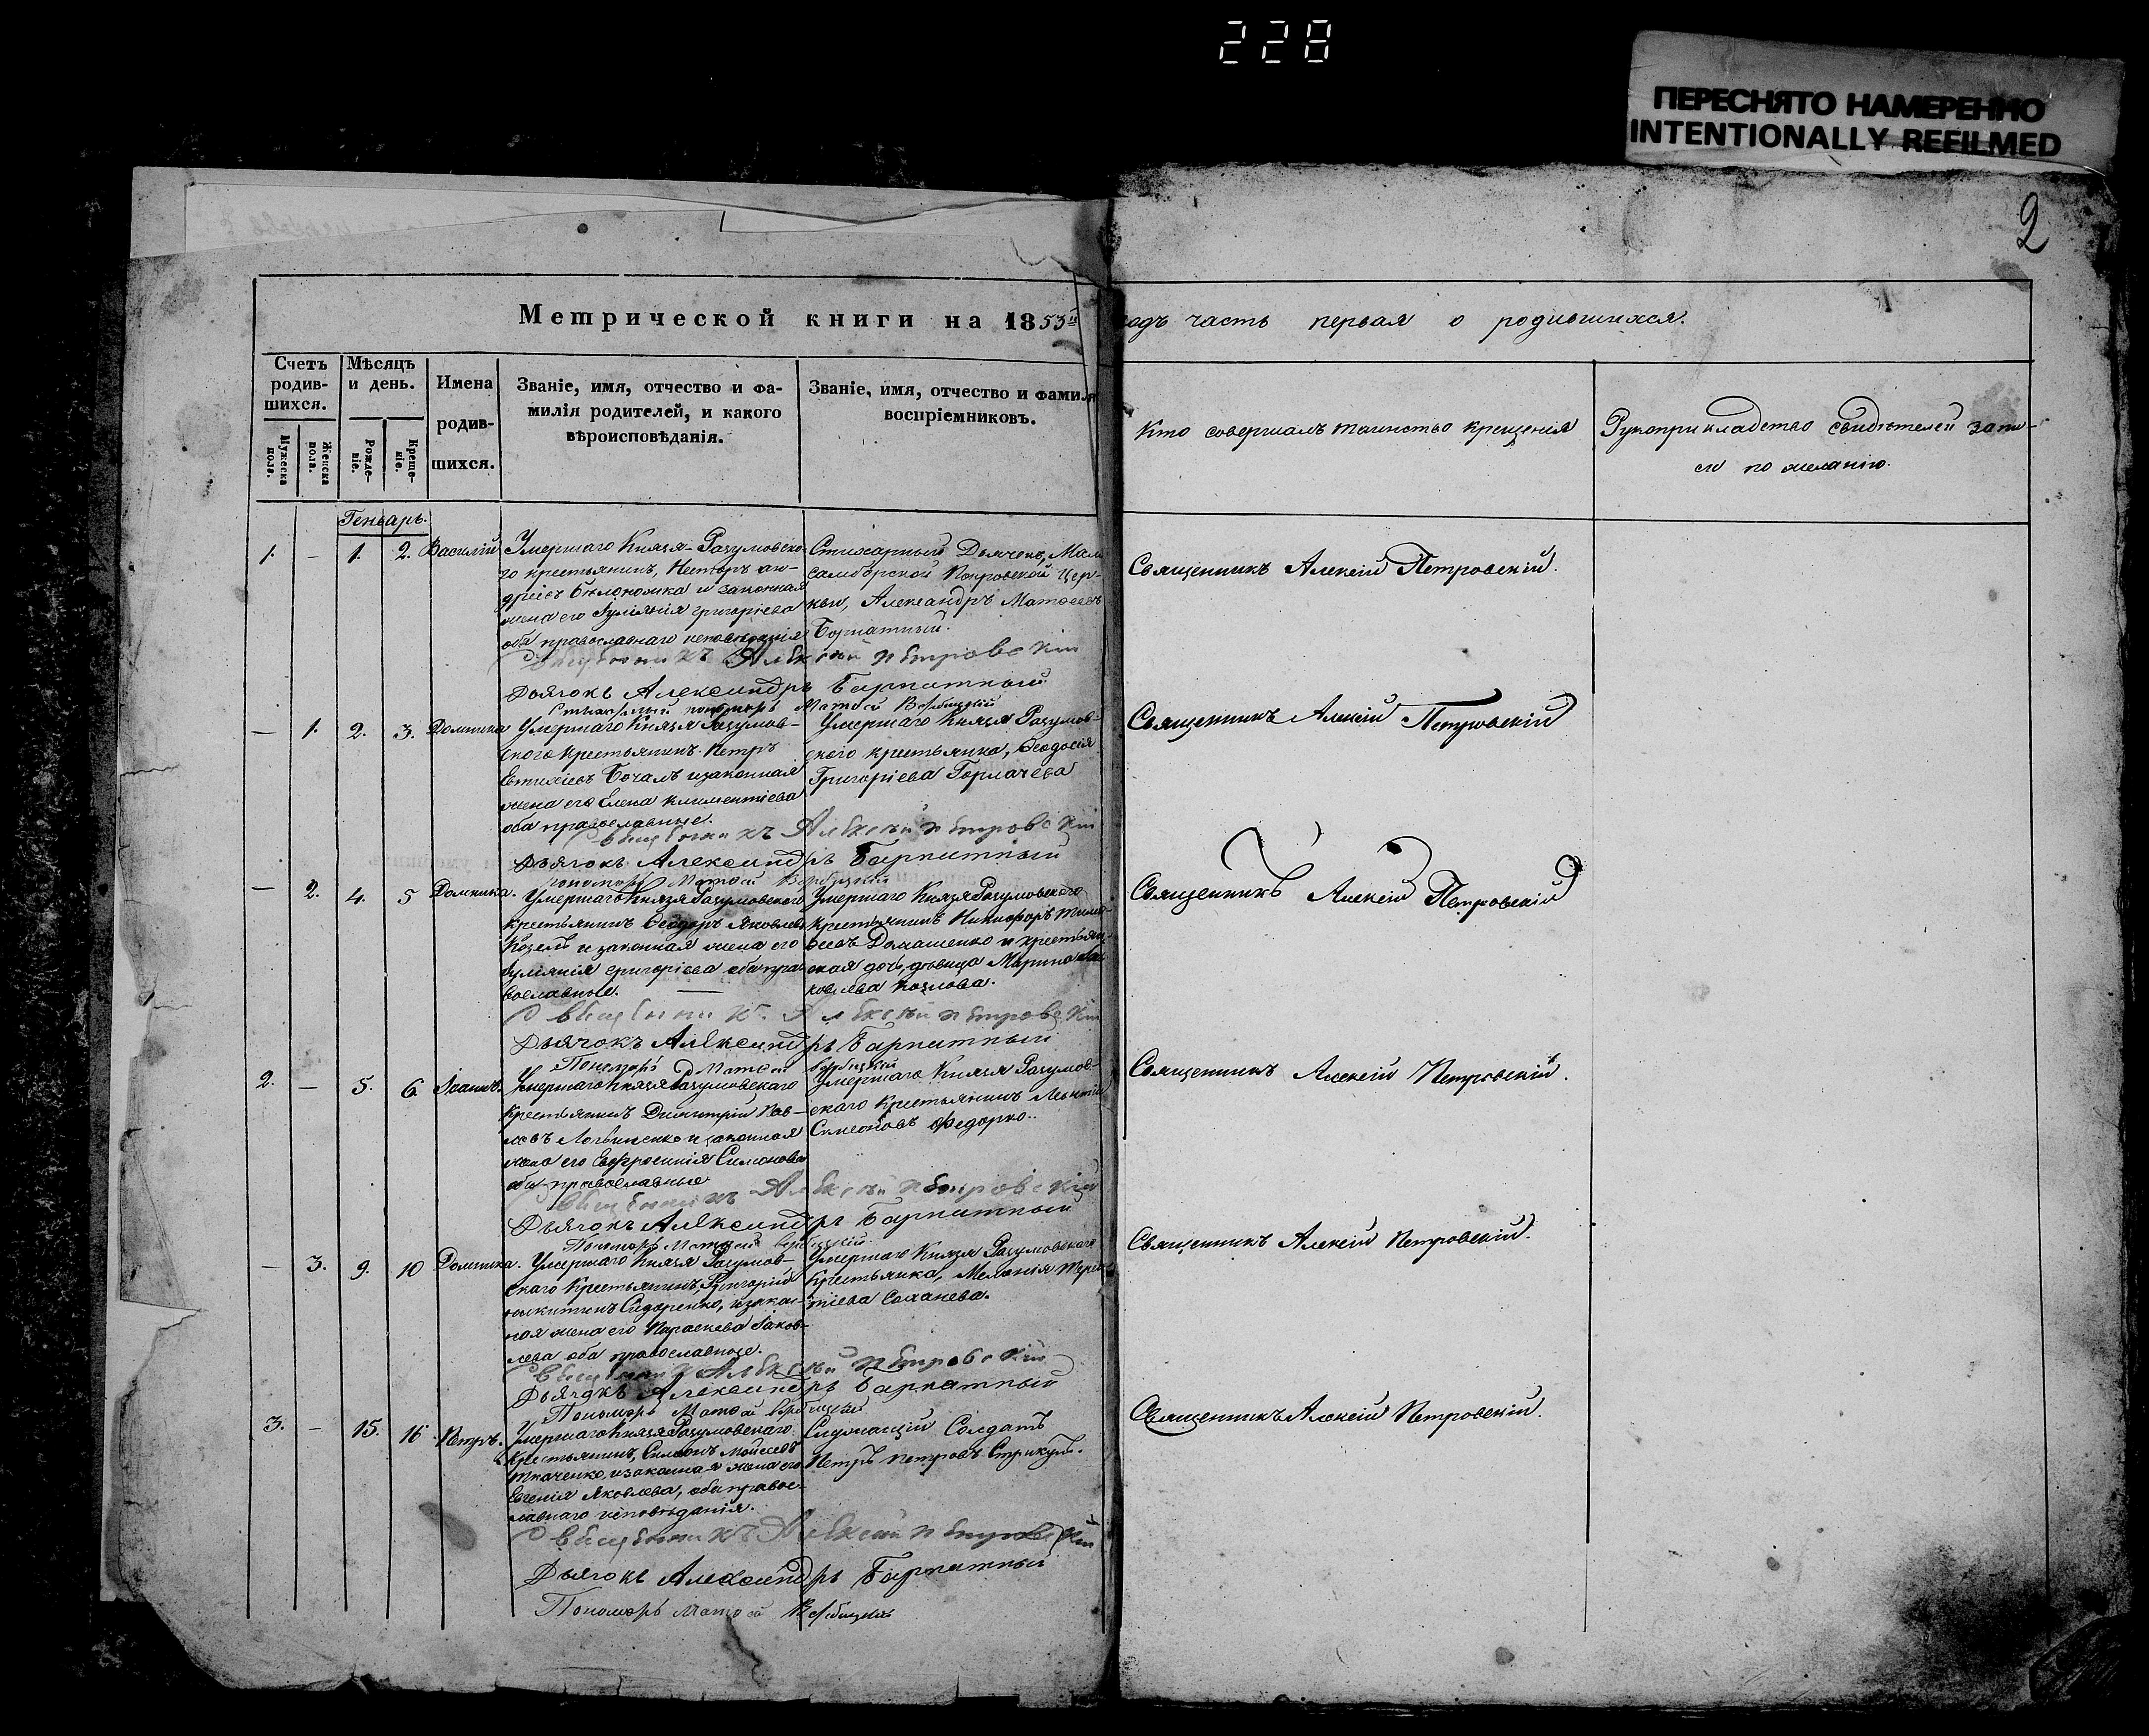 228
ПЕРЕСНЯТО НАМЕРЕННО
INTENTIONALLY REFILMED
2
Метрической книги на 1853й
годъ часть первая о родившихся.
Счетъ родив-шихся.
Мужеска пола.
Женска пола.
Мѣсяцъ и день.
Рожде-ніе.
Креще-ніе.
Имена родив-шихся.
Званіе, имя, отчество и фа-
милія родителей, и какого
вѣроисповѣданія.
Званіе, имя, отчество и фамилія
воспріемниковъ.
Кто совершалъ таинство крещенія
Рукоприкладство свидѣтелей запи-
си по желанію.
Генварь.
1. – 1. 2. Василій
Умершаго Князя Разумовска-
го крестьянинъ, Несторъ Ан-
дреевъ и законная
жена его Іуліянія Григоріева
оба православнаго исповѣданія
Стихарный Дьячекъ, Мало
самборской Покровской Цер-
кви, Александръ Матвеевъ
Барпатный.
Священникъ Алексій Петровскій.
Священникъ Алексѣй Петровскій
Дьячокъ Александръ Барпатный
Стихарный пономарь Матвей Вербицкій
– 1. 2. 3. Домника
Умершаго Князя Разумов-
скаго крестьянинъ Петръ
Евтихіевъ Бочалъ и законная
жена его Елена Климентіева
оба православные.
Умершаго Князя Разумов-
скаго крестьянка, Феодосія
Григоріева Горлачева
Священникъ Алексій Петровскій
Священникъ Алексѣй Петровскій
Дьячокъ Александръ Барпатный
Пономарь Матвей Вербицкій
– 2. 4. 5 Домника.
Умершаго Князя Разумовскаго
крестьянинъ Феодоръ Яковлевъ
Козелъ и законная жена его
Іуліянія Григоріева оба пра-
вославные.
Умершаго Князя Разумовскаго
крестьянинъ Никифоръ Тимо-
веевъ Домашенко и крестьян-
ская дочь, дѣвица Марина Іа-
ковлева Козлова.
Священникъ Алексій Петровскій
Священникъ Алексѣй Петровскій
Дьячокъ Александръ Барпатный
Пономарь Матвей Вербицкій
2. – 5. 6. Іоаннъ.
Умершаго Князя Разумовскаго
крестьянинъ Димитрій Пав-
ловъ Логвиненко и законная
жена его Евфросинія Симонова
оба православные
Умершаго Князя Разумов-
скаго крестьянинъ Леонтій
Симеоновъ Федорко.
Священникъ Алексій Петровскій.
Священникъ Алексѣй Петровскій
Дьячокъ Александръ Барпатный
Пономарь Матвей Вербицкій
– 3. 9. 10 Домника.
Умершаго Князя Разумов-
скаго крестьянинъ, Григорій
Никитинъ Сидоренко, и закон-
ная жена его Параскева Іаков-
лева оба православные.
Умершаго Князя Разумовскаго
крестьянка, Меланія Терен-
тіева Соханева.
Священникъ Алексій Петровскій.
Священникъ Алексѣй Петровскій
Дьячокъ Александръ Барпатный
Пономарь Матвей Вербицкій
3. – 15. 16 Петръ.
Умершаго Князя Разумовскаго
крестьянинъ, Симеонъ Мойсеевъ
Ткаченко, и законная жена его
Евгенія Яковлева, оба право-
славнаго исповѣданія.
Служащій Солдатъ
Петръ Петровъ Стрикуль.
Священникъ Алексій Петровскій.
Священникъ Алексѣй Петровскій
Дьячокъ Александръ Барпатный
Пономарь Матвей Вербицкій